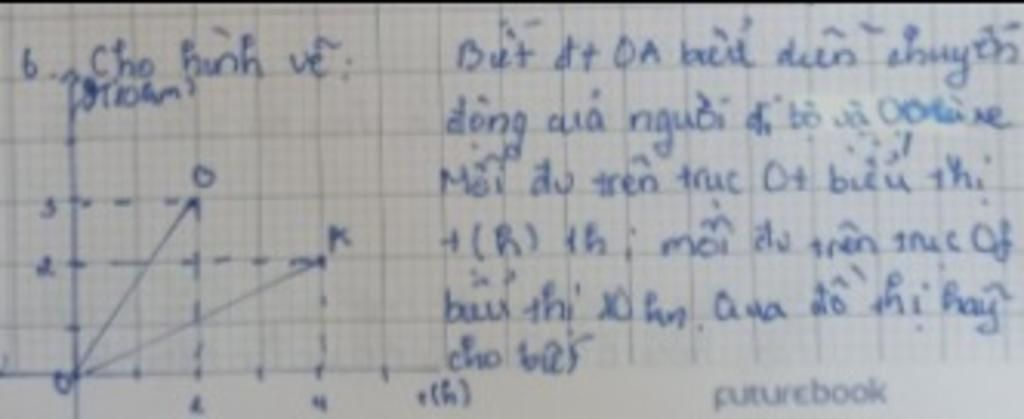 6. Cho hình vẽ:
Biết đt OA biểu diễn chuyển
động quả người đi bộ và
Mỗi đv trên trục Ot biểu thị
t(h) 1h; mỗi đv trên trục
biểu thị 10 km. Qua đồ thị hãy
cho biết
3
2
O
2
4
t(h)
futurebook